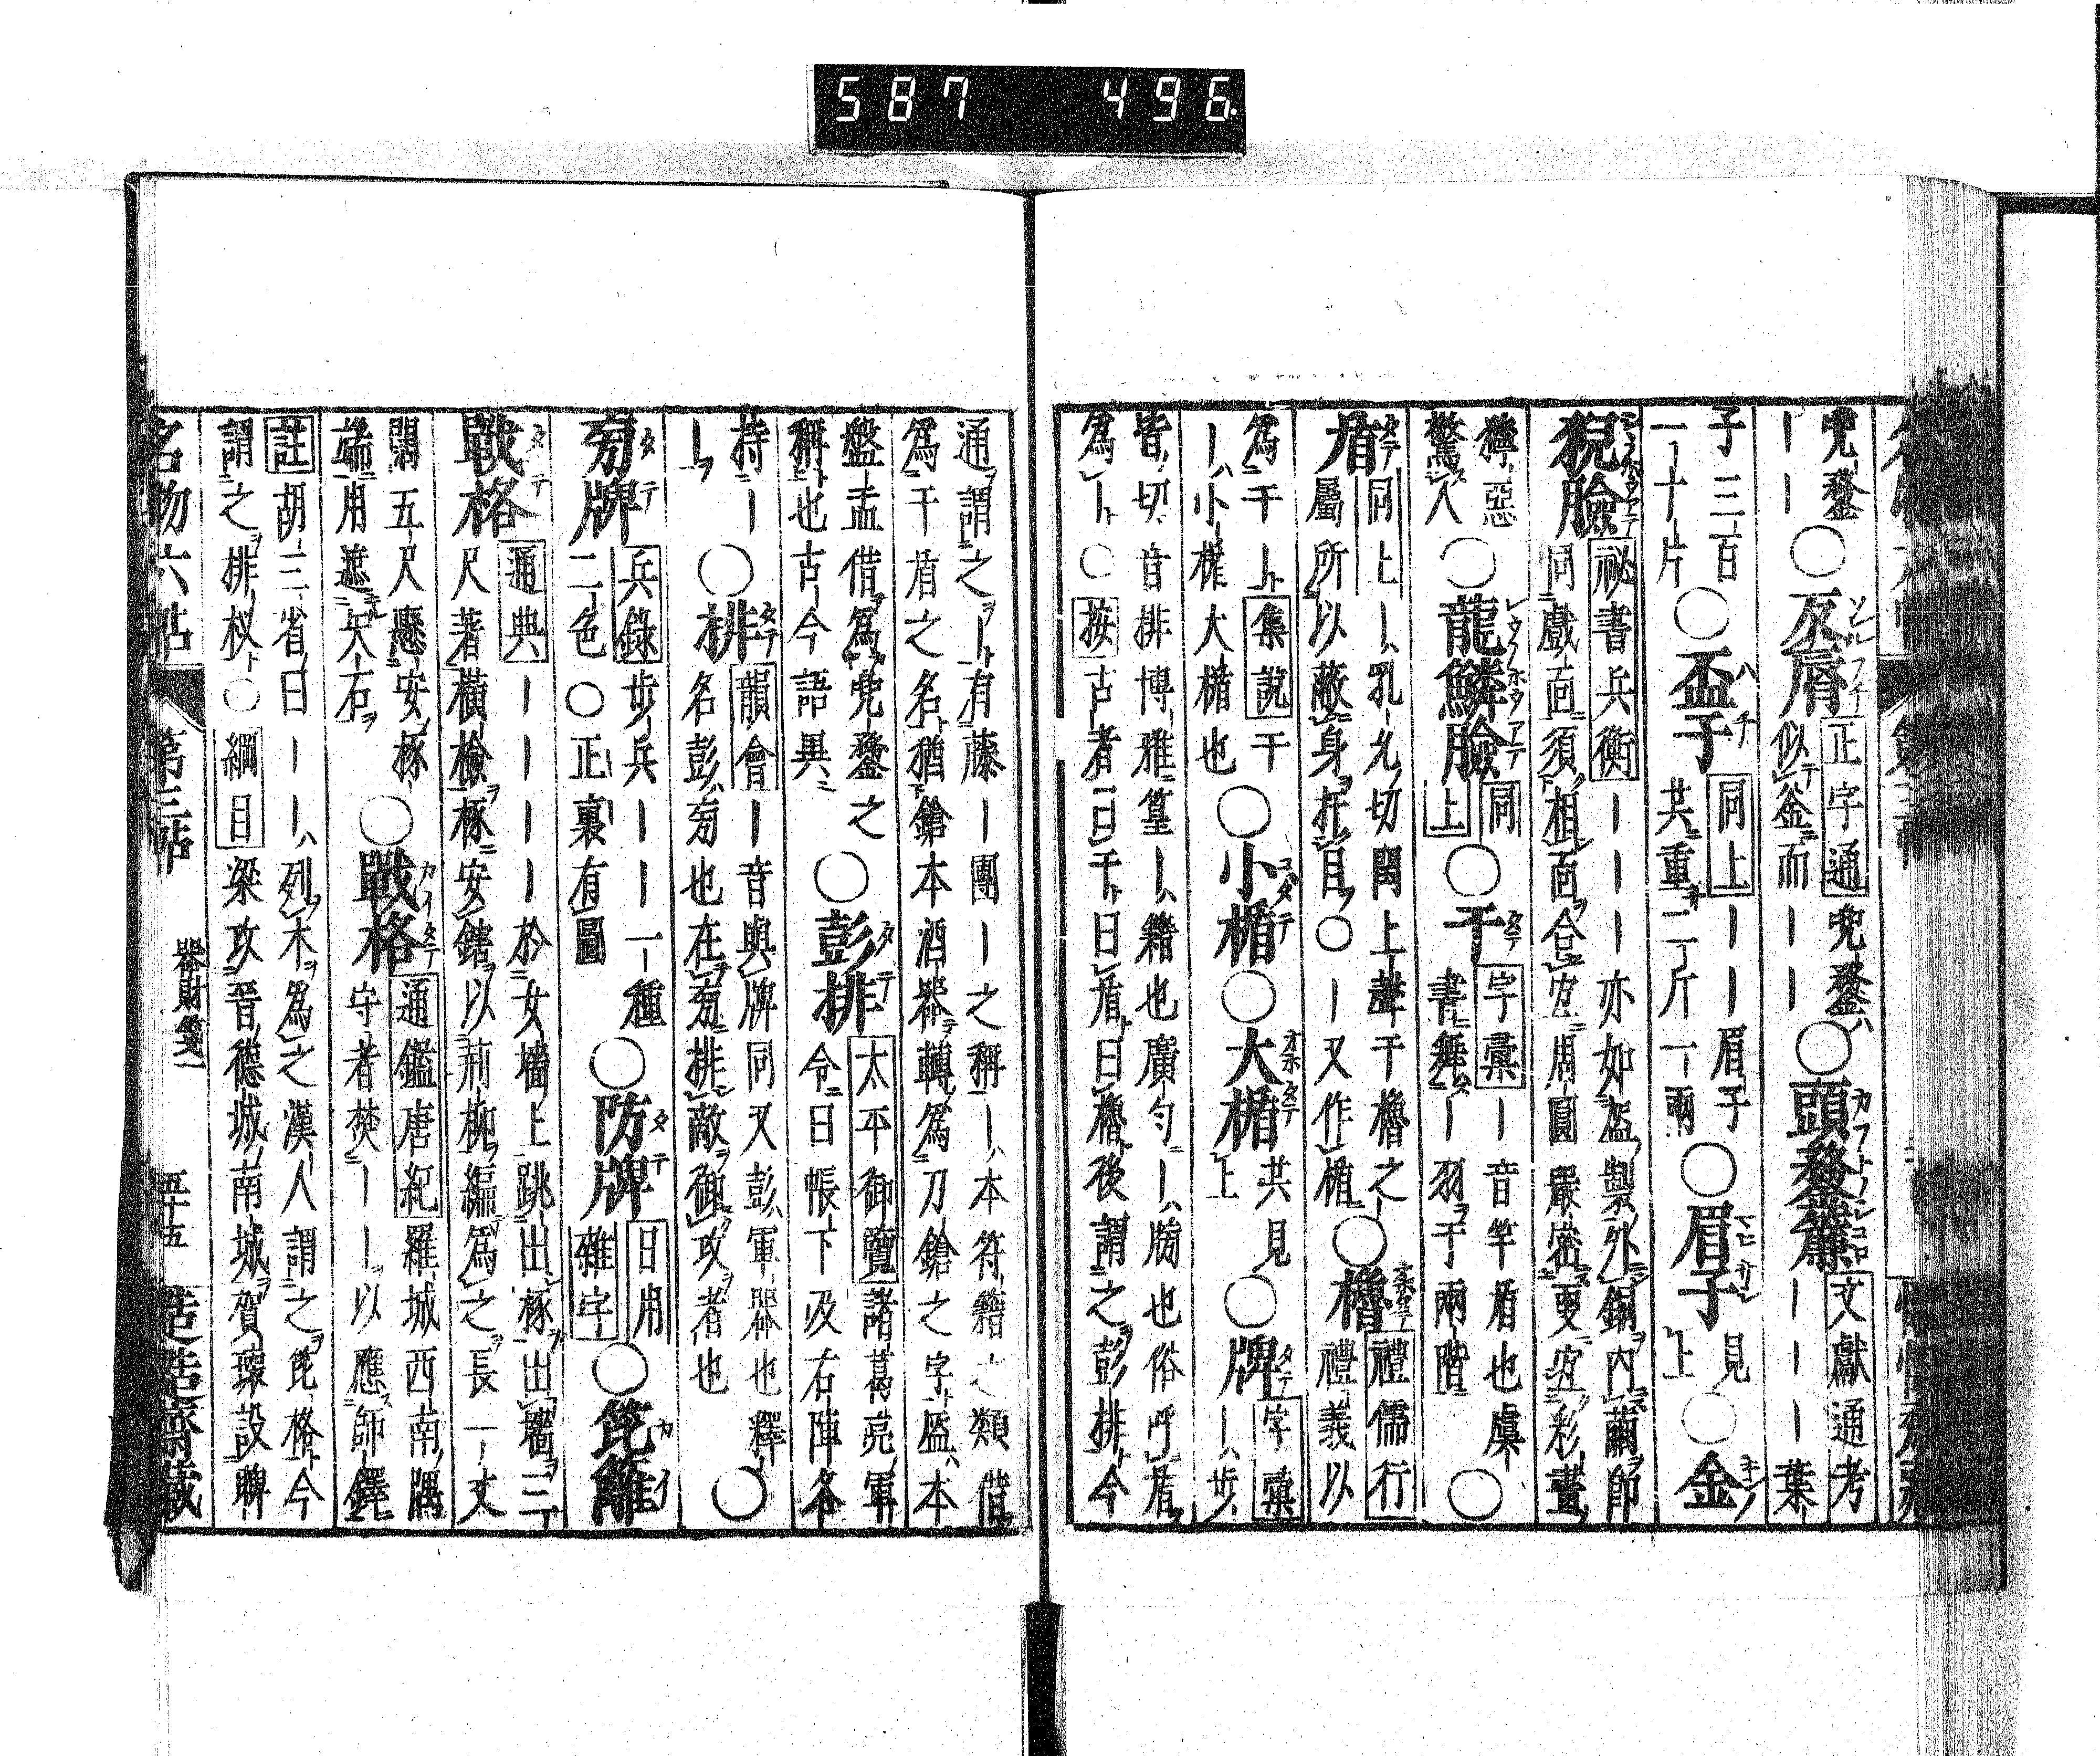 587 496
兜鍪
｜｜〇反屑正字通兜鍪
似釜而｜｜〇頭鍪簾文獻通考
｜｜｜葉
子三百
一十片〇盔子同上｜｜｜眉子
共重二斤一兩〇眉子見
上〇金
猊臉祕書兵衡｜｜亦如盔製外鍋内藺節
同戲面須相面合宐周圓嚴密更宐彩畫
獰惡
驚人〇龍鱗臉同
上〇干字彙｜音竿盾也虞
書舞｜羽于兩階〇
盾同上｜乳允切閏上聲干櫓之
屬所以蔽身扞目〇｜又作楯〇櫓禮儒行
禮義以
為干｜集說干
｜小楯大楯也〇小楯〇大楯共見
上〇牌字彙
｜步
皆切音排博雅篁｜籍也廣勻｜牓也俗呼盾
為｜〇按古者一曰干曰盾曰櫓後謂之彭排今
通謂之｜有藤｜團｜之稱｜本符籍之類借
為干盾之名猶鎗本酒器轉為刀鎗之字盔本
盤盂借為兜鍪之
稱也古今語異〇彭排太平御覽諸葛亮軍
令曰帳下及右陣各
持｜
｜〇排韻會｜音與牌同又彭軍器也釋
名彭旁也在旁排敵御攻者也〇
旁牌兵錄步兵｜｜一種
二色〇正裏有圖〇防牌日用
雜字〇笓籬
戰格通典｜｜｜｜於女墻上跳出椓出墻三
尺著橫檢椓安鎋以荊柳編為之長一丈
闊五尺懸安椓
端用遮矢石〇戰格通鑑唐紀羅城西南隅
守者焚｜｜以應師鐸
註胡三省曰｜｜列木為之漢人謂之笓格今
謂之排杈〇綱目梁攻晉德城南城賀瓌設聨
名物六帖 第三帖 器財箋二 五十五